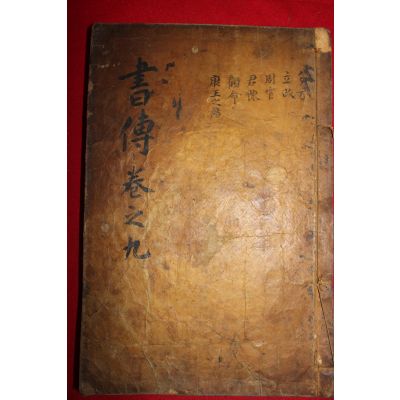 多方
立政
周官
君陳
顧命
康王之誥
書傳卷之九